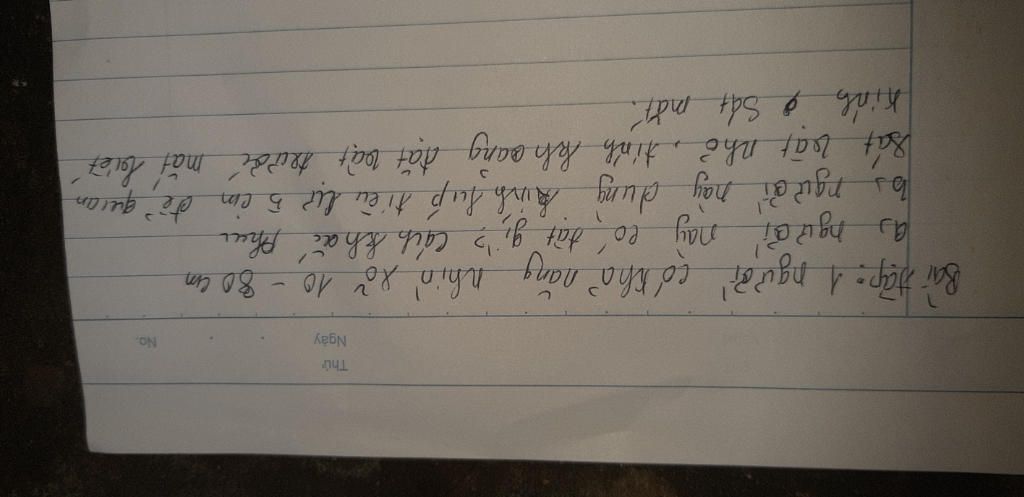 Thứ
Ngày No.
Bài tập: 1 người có khả năng nhìn rõ 10 - 80 cm
a, người này có tật gì? cách khắc phục
b, người này dùng kính lúp tiêu cự 5 cm để quan
sát vật nhỏ. tính khoảng đặt vật trước mắt biết
kính sát mắt.